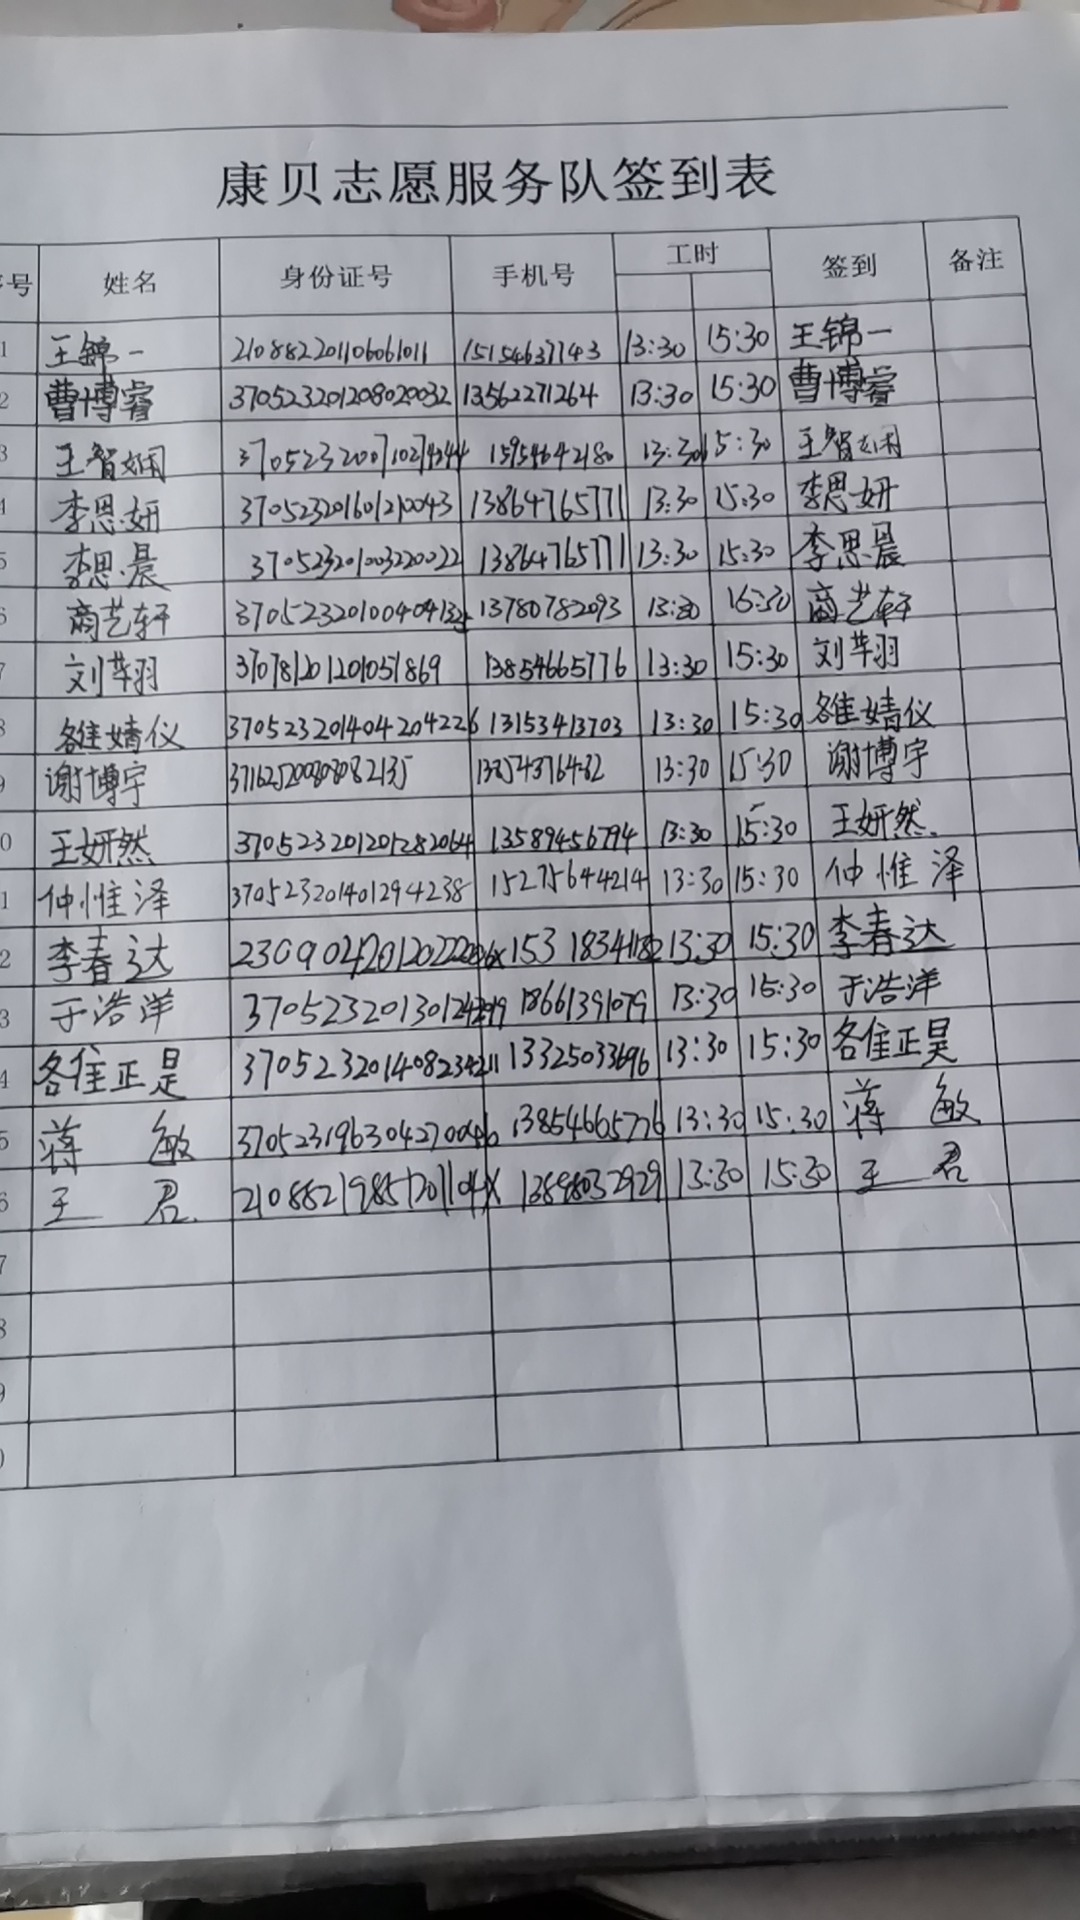 康贝志愿服务队签到表
序号 姓名 身份证号 手机号 工时 签到 备注
1 王锦一 210882201106061011 15154637743 13:30 15:30 王锦一
2 曹博睿 370523201208020032 13562271264 13:30 15:30 曹博睿
3 王智娴 370523200710274244 15954642180 13:30 15:30 王智娴
4 李思妍 370523201601210043 13864765771 13:30 15:30 李思妍
5 李思晨 370523201003220022 13864765771 13:30 15:30 李思晨
6 商艺轩 13780782093 13:30 15:30 商艺轩
7 刘苹羽 370781201201051869 13854665776 13:30 15:30 刘苹羽
8 雒婧仪 370523201404204226 13153413703 13:30 15:30 雒婧仪
9 谢博宇 13:30 15:30 谢博宇
10 王妍然 370523201201282064 13589456794 13:30 15:30 王妍然
11 仲惟泽 370523201401294238 15275644214 13:30 15:30 仲惟泽
12 李春达 13:30 15:30 李春达
13 于浩洋 18661391079 13:30 15:30 于浩洋
14 雒正是 370523201408234211 13325033696 13:30 15:30 雒正昊
15 蒋敏 13854665776 13:30 15:30 蒋敏
16 王君 13:30 15:30 王君
7
8
9
0